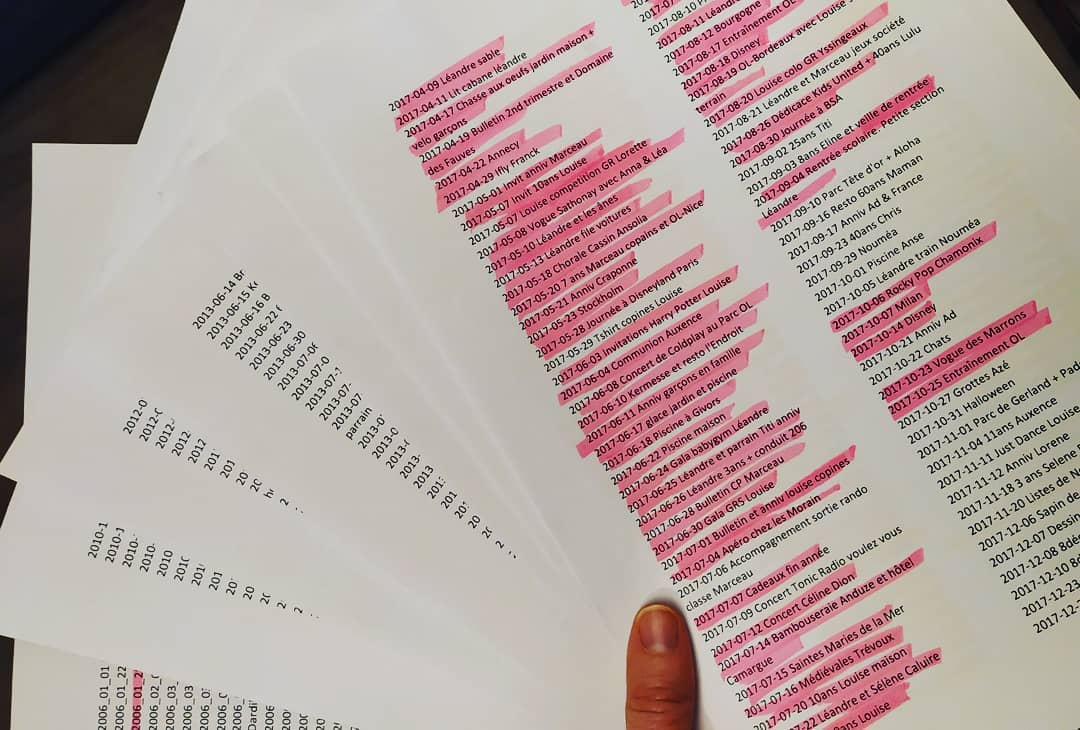 2017-04-09 Léandre sable
2017-04-11 Lit cabane léandre
2017-04-17 Chasse aux oeufs jardin maison +
velo garçons
2017-04-19 Bulletin 2nd trimestre et Domaine
des Fauves
2017-04-22 Annecy
2017-04-29 Ifly Franck
2017-05-01 Invit anniv Marceau
2017-05-07 Invit 10ans Louise
2017-05-07 Louise competition GR Lorette
2017-05-08 Vogue Sathonay avec Anna & Léa
2017-05-10 Léandre et les ânes
2017-05-13 Léandre file voitures
2017-05-18 Chorale Cassin Ansolia
2017-05-20 7 ans Marceau copains et OL-Nice
2017-05-21 Anniv Craponne
2017-05-23 Stockholm
2017-05-28 Journée à Disneyland Paris
2017-05-29 Tshirt copines Louise
2017-06-03 Invitations Harry Potter Louise
2017-06-04 Communion Auxence
2017-06-08 Concert de Coldplay au Parc OL
2017-06-10 Kermesse et resto l'Endroit
2017-06-11 Anniv garçons en famille
2017-06-17 glace jardin et piscine
2017-06-18 Piscine à Givors
2017-06-22 Piscine maison
2017-06-24 Gala babygym Léandre
2017-06-25 Léandre et parrain Titi anniv
2017-06-26 Léandre 3ans + conduit 206
2017-06-28 Bulletin CP Marceau
2017-06-30 Gala GRS Louise
2017-07-01 Bulletin et anniv louise copines
2017-07-04 Apéro chez les Morain
2017-07-06 Accompagnement sortie rando
classe Marceau
2017-07-07 Cadeaux fin année
2017-07-09 Concert Tonic Radio voulez vous
2017-07-12 Concert Céline Dion
2017-07-14 Bambouseraie Anduze et hôtel
Camargue
2017-07-15 Saintes Maries de la Mer
2017-07-16 Médiévales Trévoux
2017-07-20 10ans Louise maison
7-22 Léandre et Sélène Caluire
ans Louise
2017-08-10
2017-08-11 Léandre
2017-08-12 Bourgogne
2017-08-17 Entraînement OL
2017-08-18 Disney
2017-08-19 OL-Bordeaux avec Louise
terrain
2017-08-20 Louise colo GR Yssingeaux
2017-08-21 Léandre et Marceau jeux société
2017-08-26 Dédicace Kids United + 40ans Lulu
2017-08-30 Journée à BSA
2017-09-02 25ans Titi
2017-09-03 8ans Eline et veille de rentrée
2017-09-04 Rentrée scolaire. Petite section
Léandre
2017-09-10 Parc Tête d'or + Aloha
2017-09-16 Resto 60ans Maman
2017-09-17 Anniv Ad & France
2017-09-23 40ans Chris
2017-09-29 Nouméa
2017-10-01 Piscine Anse
2017-10-05 Léandre train Nouméa
2017-10-06 Rocky Pop Chamonix
2017-10-07 Milan
2017-10-14 Disney
2017-10-21 Anniv Ad
2017-10-22 Chats
2017-10-23 Vogue des Marrons
2017-10-25 Entraînement OL
2017-10-27 Grottes Azé
2017-10-31 Halloween
2017-11-01 Parc de Gerland + Pad
2017-11-04 11ans Auxence
2017-11-11 Just Dance Louise
2017-11-12 Anniv Lorene
2017-11-18 3 ans Selene
2017-11-20 Listes de N
2017-12-06 Sapin de
2017-12-07 Dessin
2017-12-08 8déc
2017-12-10 8d
2017-12-23
2017-12-
2013-06-14 Br
2013-06-15 K
2013-06-16 B
2013-06-22
2013-06-23
2013-06-30
2013-07-06
2013-07-0
2013-07-1
2013-07-
2013-07
parrain
2013-0
2013-0
2013-0
2013-
2013
201
201
20
2
2012-0
2012-0
2012-
2012
2012
201
201
20
2
2010-1
2010-1
2010-
2010-
2010
2010
201
201
20
20
2
2
2006_01_01
2006_01_22
2006_01_2
2006_02_0
2006_03_
2006_03
2006_0
2006_0
2006_
Dardil
2006
200
200
20